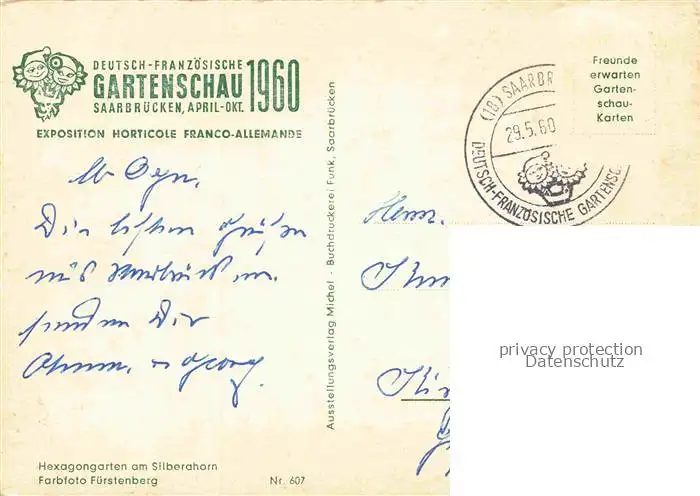 DEUTSCH-FRANZÖSISCHE
GARTENSCHAU 1960
SAARBRÜCKEN, APRIL-OKT.
EXPOSITION HORTICOLE FRANCO-ALLEMANDE
Die besten Grüße
aus Saarbrücken
senden Dir
Hexagongarten am Silberahorn
Farbfoto Fürstenberg
Nr. 607
Ausstellungsverlag Michel - Buchdruckerei Funk, Saarbrücken
(18) SAARBR
29.5.60
DEUTSCH-FRANZÖSISCHE GARTENSC
Freunde
erwarten
Garten-
schau-
Karten
Herrn
privacy protection
Datenschutz